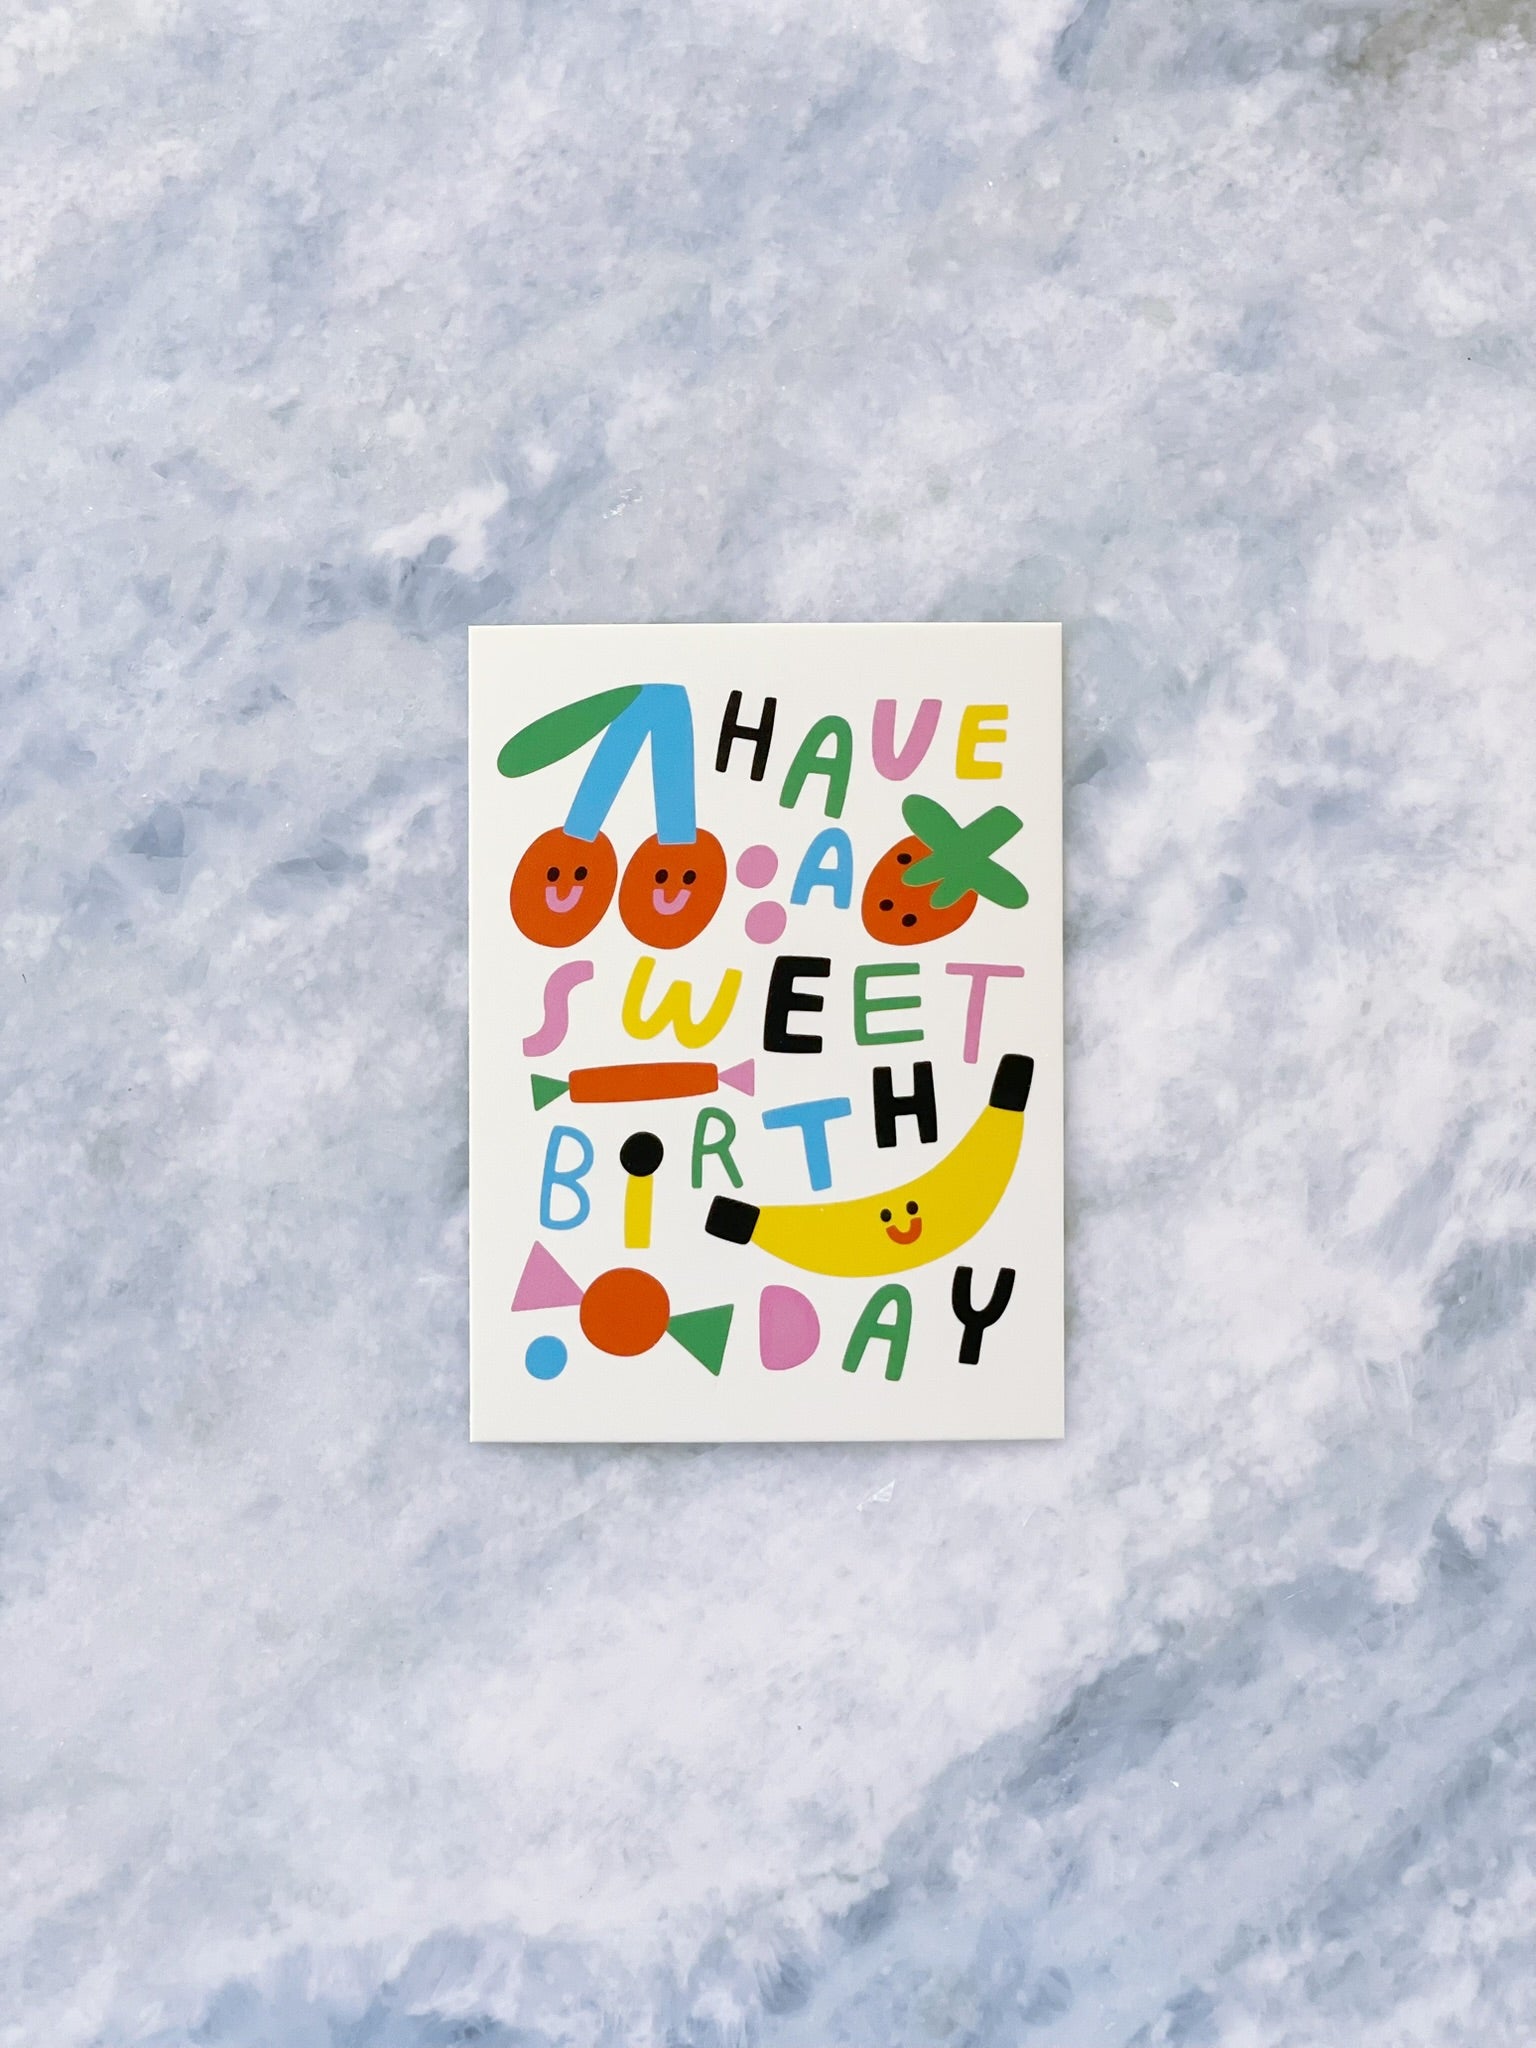 HAVE
A
SWEET
BiRTH
DAY